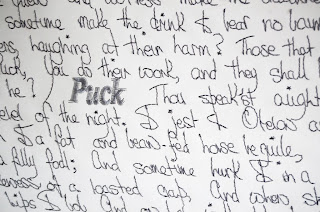 sometime make the drink to bear no barm
ers, laughing at their harm? Those that
uck, you do their work, and they shall
he? Puck Thou speak'st aright
of the night. I jest to Oberon
I a fat and bean-fed horse beguile,
a filly foal; And sometime lurk I in a
of a roasted crab, And when sh
lips I bob And